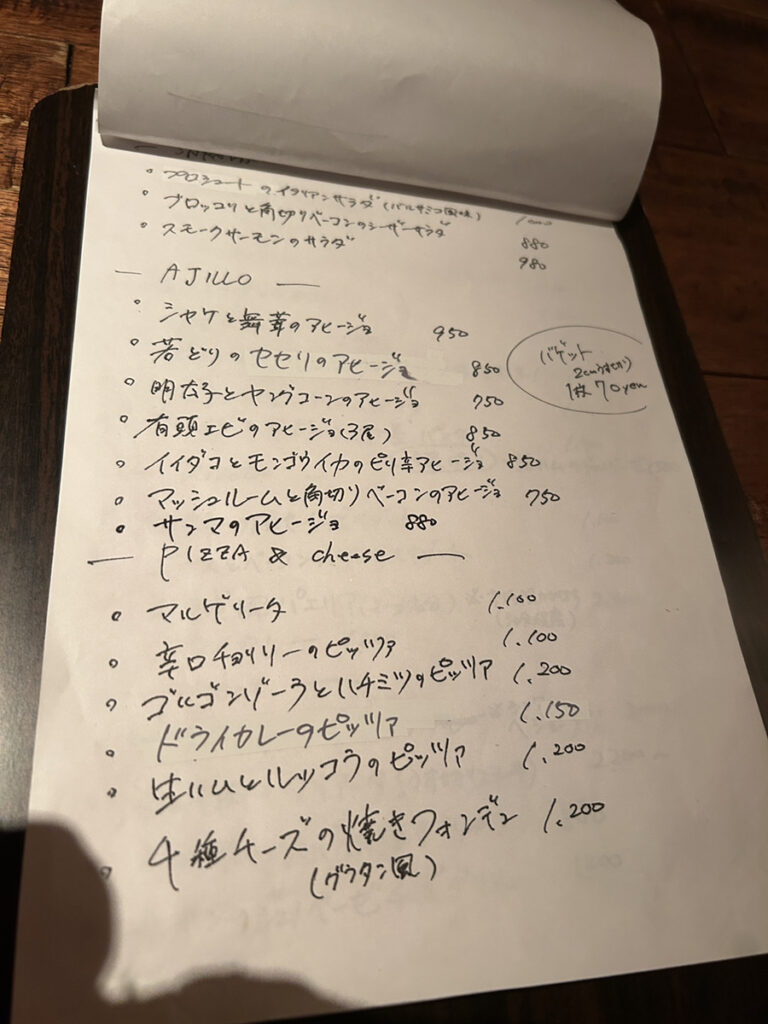 ・プロシュートのイタリアンサラダ(バルサミコ風味)
・ブロッコリと角切りベーコンのシーザーサラダ 880
・スモークサーモンのサラダ 980
— AJILLO —
・シャケと舞茸のアヒージョ 950
・若どりのセセリのアヒージョ 850
バゲット
1枚 70yen
・明太子とヤングコーンのアヒージョ 750
・有頭エビのアヒージョ(3尾) 850
・イイダコとモンゴウイカのピリ辛アヒージョ 850
・マッシュルームと角切りベーコンのアヒージョ 750
・サンマのアヒージョ 880
— PIZZA & cheese —
・マルゲリータ 1.100
・辛口チョリソーのピッツァ 1.100
・ゴルゴンゾーラとハチミツのピッツァ 1.200
・ドライカレーのピッツァ 1.150
・生ハムとルッコラのピッツァ 1.200
・4種チーズの焼きフォンデュ 1.200
(グラタン風)